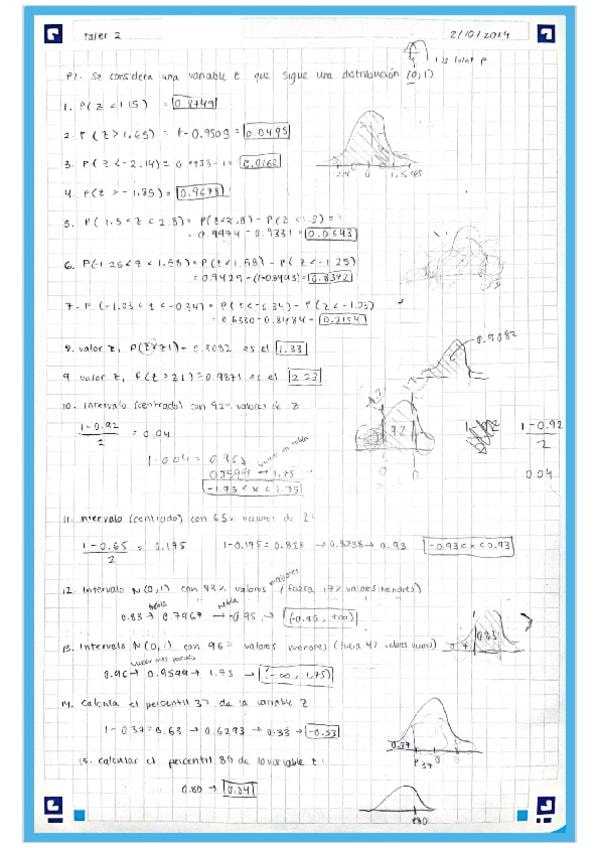 Taller 2
2/10/2024
P1. Se considera una variable z que sigue una distribución (0,1)
1. P(z < 1.15) = 0.8749
2. P(z > 1.65) = 1 - 0.9505 = 0.0495
3. P(z < -2.14) = 0.9838 - 1 = 0.0162
4. P(z > -1.85) = 0.9678
5. P(1.5 < z < 2.8) = P(z < 2.8) - P(z < 1.5) =
= 0.9974 - 0.9331 = 0.0643
6. P(-1.25 < z < 1.58) = P(z < 1.58) - P(z < -1.25)
= 0.9429 - (1-0.8943) = 0.8372
7. P(-1.03 < z < -0.34) = P(z < -0.34) - P(z < -1.03)
= 0.6330 - 0.8484 = 0.2154
8. valor z, P(z > z1) = 0.9082 es el 1.33
0.9082
9. valor z, P(z > z1) = 0.9871 es el 2.23
10. Intervalo (centrado) con 92% valores de z
1-0.92
2
= 0.04
1-0.92
2
0.04
0.9599 → 1.75
-1.75 < x < 1.75
11. Intervalo (centrado) con 65% valores de z:
1-0.65
2
= 0.175 1-0.175 = 0.825 → 0.8238 → 0.93 -0.93 < x < 0.93
12. Intervalo N(0,1) con 83% valores mayores (fuera 17% valores menores)
0.83 → 0.7967 → -0.95 → (-0.95, +∞)
0.83
13. Intervalo N(0,1) con 96% valores menores (fuera 4% valores
0.96 → 0.9599 → 1.75 → (-∞, 1.75)
14. Calcula el percentil 37 de la variable z
1 - 0.37 = 0.63 → 0.6293 → 0.33 → -0.33
0.37
P37 0
15. calcular el percentil 80 de la variable z:
0.80 → 0.84
P80